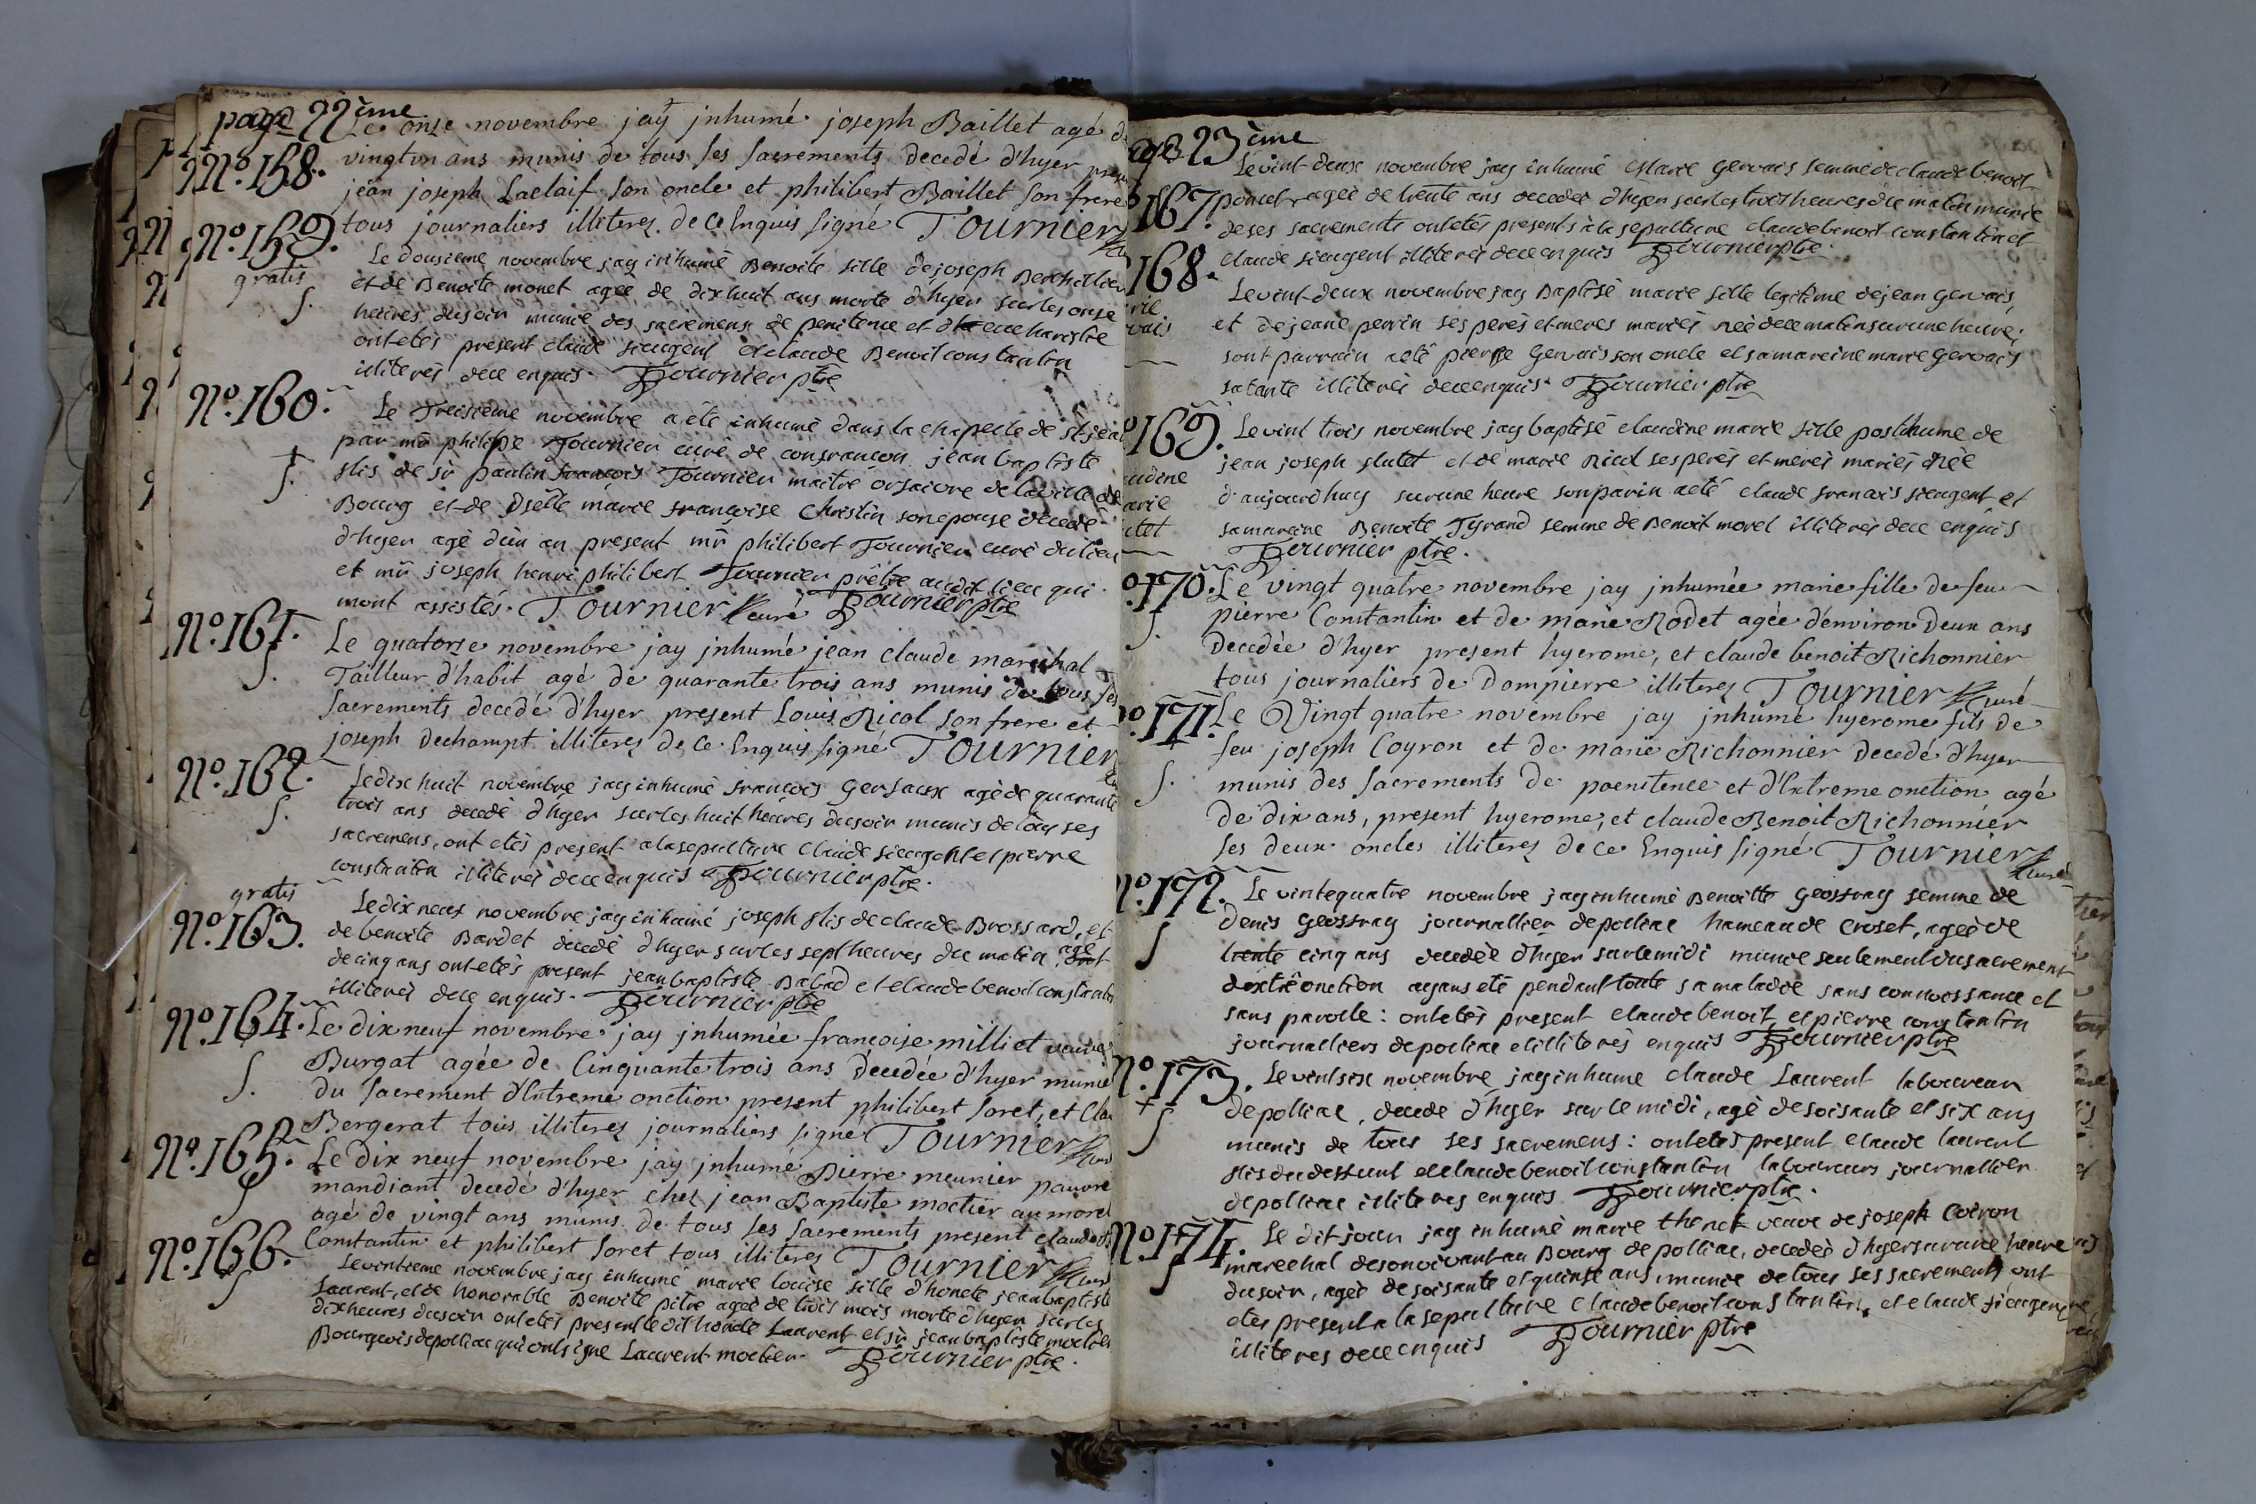 page 22ème
Le onse novembre jaÿ jnhumé joseph Baillet agé
N.º 158. vingt un ans munis de tous ses sacrements decedé d'hyer
jean joseph Laclaif son oncle et philibert Baillet son frere
tous journaliers illiterez de ce Enquis signé Tournier
N.º 159.
gratis
s.
Le dousieme novembre jay inhumé Benoite fille de joseph Berthillier
et de Benoite monet agée de dix huit ans morte d'hyer sur les onse
heures du soir munie des sacremens de penitence et d'eucharistie
ont etés present claude sieugent et claude Benoit constantin
illiterés de ce enquis. Tournier ptre
N.º 160.
s.
Le Treisieme novembre a été inhumé dans la chapelle de st jean
par mr philippe Tournier curé de confrançon jean baptiste
fils de sr paulin françois Tournier maitre orfaivre de la ville de
Bourg et de dselle marie françoise Christin son epouse decedé
d'hyer agé d'un an present mr philibert Tournier curé du lieu
et mr joseph henri philibert Tournier prêtre audit lieu qui
mont assistés. Tournier curé Tournier ptre
N.º 161.
s.
Le quatorse novembre jay jnhumé jean claude marechal
Tailleur d'habit agé de quarante trois ans munis de tous ses
sacrements decedé d'hyer present Louis Nicol son frere et
joseph dechampt illiterez de ce Enquis signé Tournier
N.º 162.
s.
Le dix huit novembre jay inhumé françois Gersaux agé de quarante
trois ans decedé d'hyer sur les huit heures du soir munis de tous ses
sacremens, ont etés present a la sepulture claude sieugent et pierre
constantin illiterés de ce enquis Tournier ptre.
gratis
N.º 163.
Le dix neuf novembre jay inhumé joseph fils de claude Brossard, et
de benoite Bardet decedé d'hyer sur les sept heures du matin agé
de cinq ans ont etés present jean baptiste Babad et claude benoit constantin
illiterés de ce enquis. Tournier ptre
N.º 164.
s.
Le dix neuf novembre jay jnhumée françoise milliet veuve
Burgat agée de Cinquante trois ans décedée d'hyer munie
du sacrement d'Extreme onction present philibert soret, et
Bergerat tous illiterez journaliers signé Tournier
N.º 165.
s
Le dix neuf novembre jay jnhumé Pierre meunier pauvre
mandiant decedé d'hyer chez jean Baptiste moctier au morel
agé de vingt ans munis de tous ses sacrements present claude
Constantin et philibert soret tous illiterez Tournier
N.º 166.
s
Le vintieme novembre jay inhumé marie louise fille d'honete jean baptiste
Laurent, et de honorable Benoite pitre agée de trois mois morte d'hyer sur les
dix heures du soir ont etés present le dit honete Laurent et sr jean baptiste moctier
Bourgeois de polliac qui ont signé Laurent moctier. Tournier ptre.
23ème
Le vint deux novembre jay inhumé Marie Gervais femme de claude benoit
167. poncet agée de trente ans decedée d'hyer sur les trois heures du matin munie
de ses sacrements ont etés presents à la sepulture claude benoit constantin et
claude sieugent illiterés de ce enquis Tournier ptre.
168.
Le vint deux novembre jay Baptisé marie fille legitime de jean Gervais
et de jeane perrin ses perès et meres mariés née de ce matin sur une heure,
sont parrain a eté pierre Gervais son oncle et sa mareine marie Gervais
sa tante illiterés de ce enquis. Tournier ptre
169.
Le vint trois novembre jay baptisé claudine marie fille posthume de
jean joseph flutet et de marie Nicol ses perès et merès mariés née
d'aujourd'huy sur une heure son parin a eté claude franois sieugent et
sa mareine Benoite Tyrand femme de Benoit morel illiterés de ce enquis
Tournier ptre.
170.
s.
Le vingt quatre novembre jay jnhumée marie fille de feu
pierre Constantin et de marie Rodet agée d'environ deux ans
decedée d'hyer present hyerome, et claude benoit Richonnier
tous journaliers de Dompierre illiterez Tournier curé
171.
s.
Le Vingt quatre novembre jay jnhumé hyerome fils de
feu joseph Coyron et de marie Richonnier decedé d'hyer
munis des sacrements de poenitence et d'Extreme onction agé
de dix ans, present hyerome, et claude Benoit Richonnier
ses deux oncles illiterez de ce Enquis signé Tournier curé
N.º 172.
s
Le vintequatre novembre jay inhumé Benoitte Geoffray femme de
denis Geoffray journallier de polliac hameau de croset, agée de
trente cinq ans decedée d'hyer sur le midi munie seulement du sacrement
d'extrê onction ayans eté pendant toute sa maladie sans connoissance et
sans parolle: ont etés present claude benoit, et pierre constantin
journalliers de polliac et illiterés enquis Tournier ptre
N.º 173.
s
Le vint six novembre jay inhumé claude Laurent laboureur
de polliac, decedé d'hyer sur le midi, agé de soisante et six ans
munis de tous ses sacremens: ont etés present claude laurent
fils du deffunt et claude benoit constantin laboureurs journallier
de polliac illiteres enquis Tournier ptre.
N.º 174.
s
Le dit jour jay inhumé marie veuve de joseph Coiron
marechal de son vivant au Bourg de polliac, decedée d'hyer sur une heure
du soir, agée de soisante et quinse ans, munie de tous ses sacrements ont
etes present a la sepulture claude benoit constantin, et claude sieugent
illiteres de ce enquis Tournier ptre